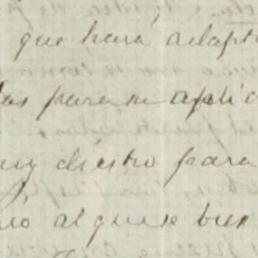 que hará adapt
las para su aplic
uy diestro para
ió al que se bus